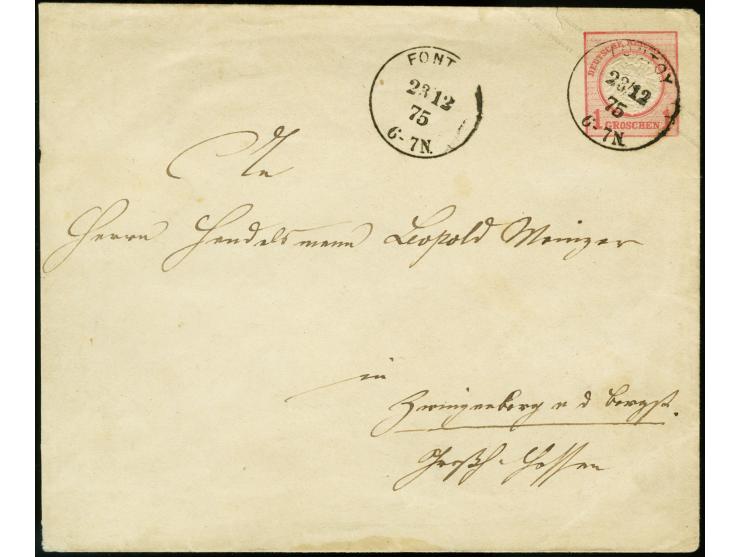 FONT
23 12
75
6-7N.
DEUTSCHE REICHS
TOY
23/12
75
6-7N.
1 GROSCHEN 1
An
Herrn Handelsmann Leopold Mainzer
in
Zwingenberg a d Bergst.
Großh. Hessen